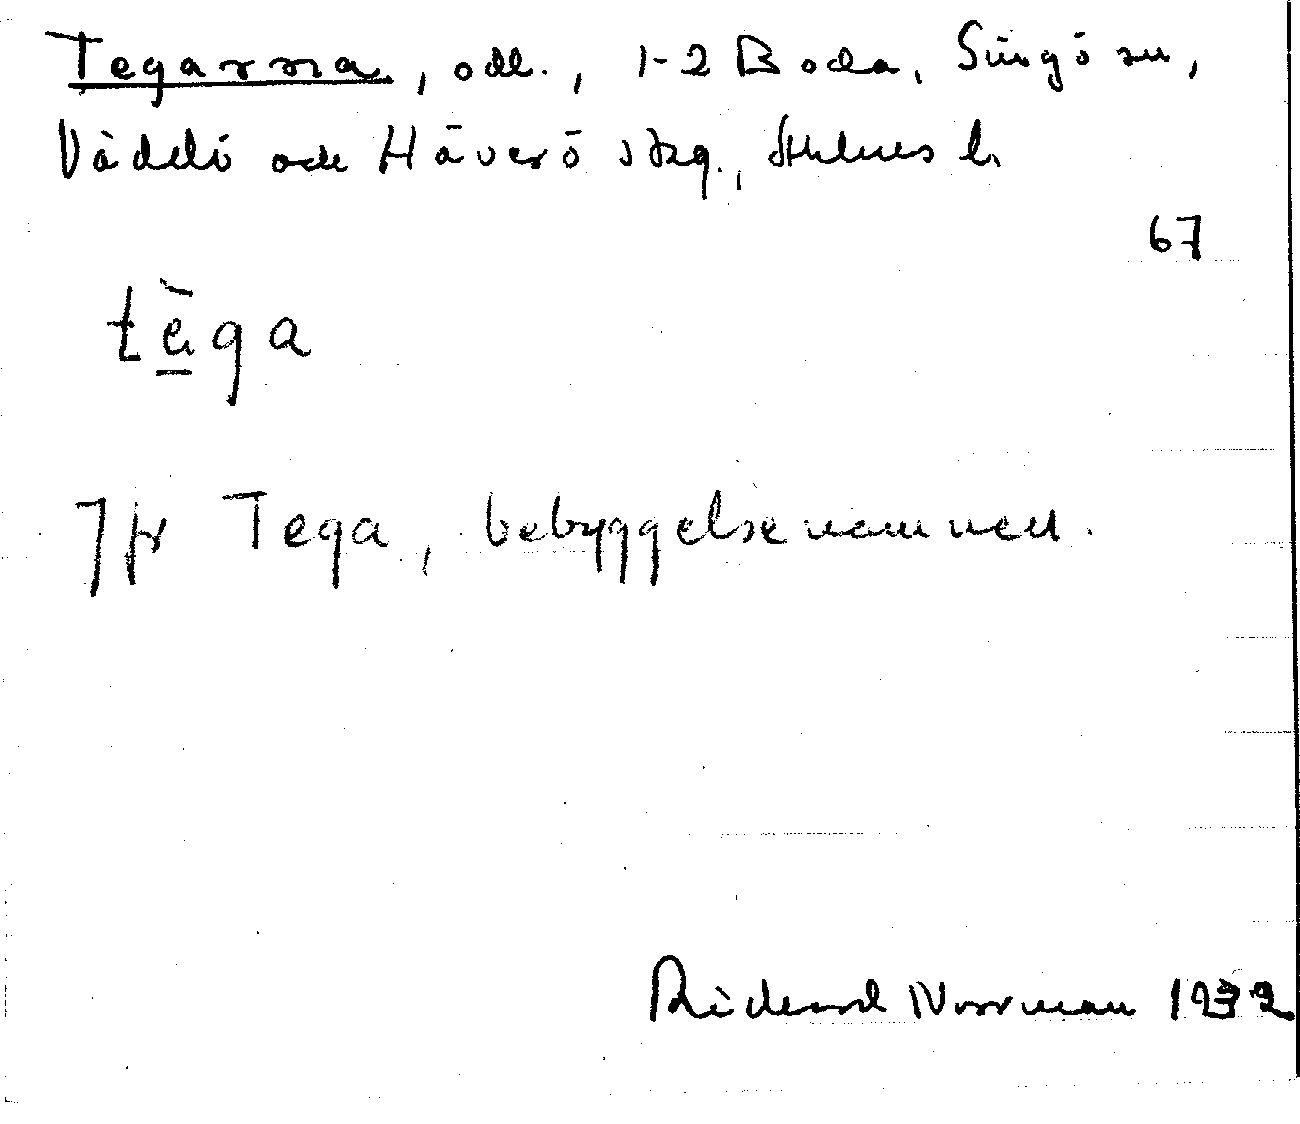 Tegarna, odl., 1-2 Boda, Singö sn,
Väddö och Häverö skg., Sthlms l.
67
tèga
Jfr Tega, bebyggelsenamnen.
Rickard Norrman 1932